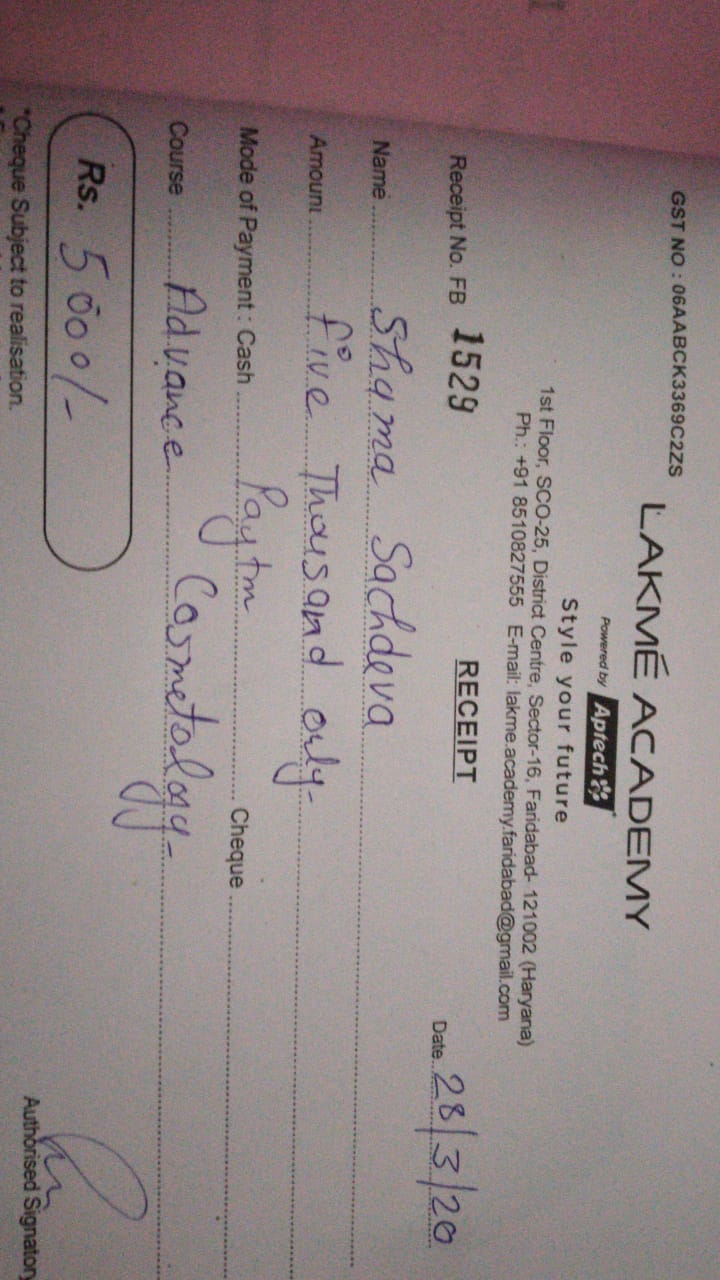 GST NO : 06AABCK3369C2ZS
LAKMÉ ACADEMY
Powered by Aptech
Style your future
1st Floor, SCO-25, District Centre, Sector-16, Faridabad- 121002 (Haryana)
Ph.: +91 8510827555 E-mail: lakme.academy.faridabad@gmail.com
Receipt No. FB 1529 RECEIPT Date 28/3/20
Name Shama Sachdeva
Amount five Thousand only-
Mode of Payment : Cash Paytm Cheque
Course Advance Cosmetology-
Rs. 5000/-
*Cheque Subject to realisation. Authorised Signatory